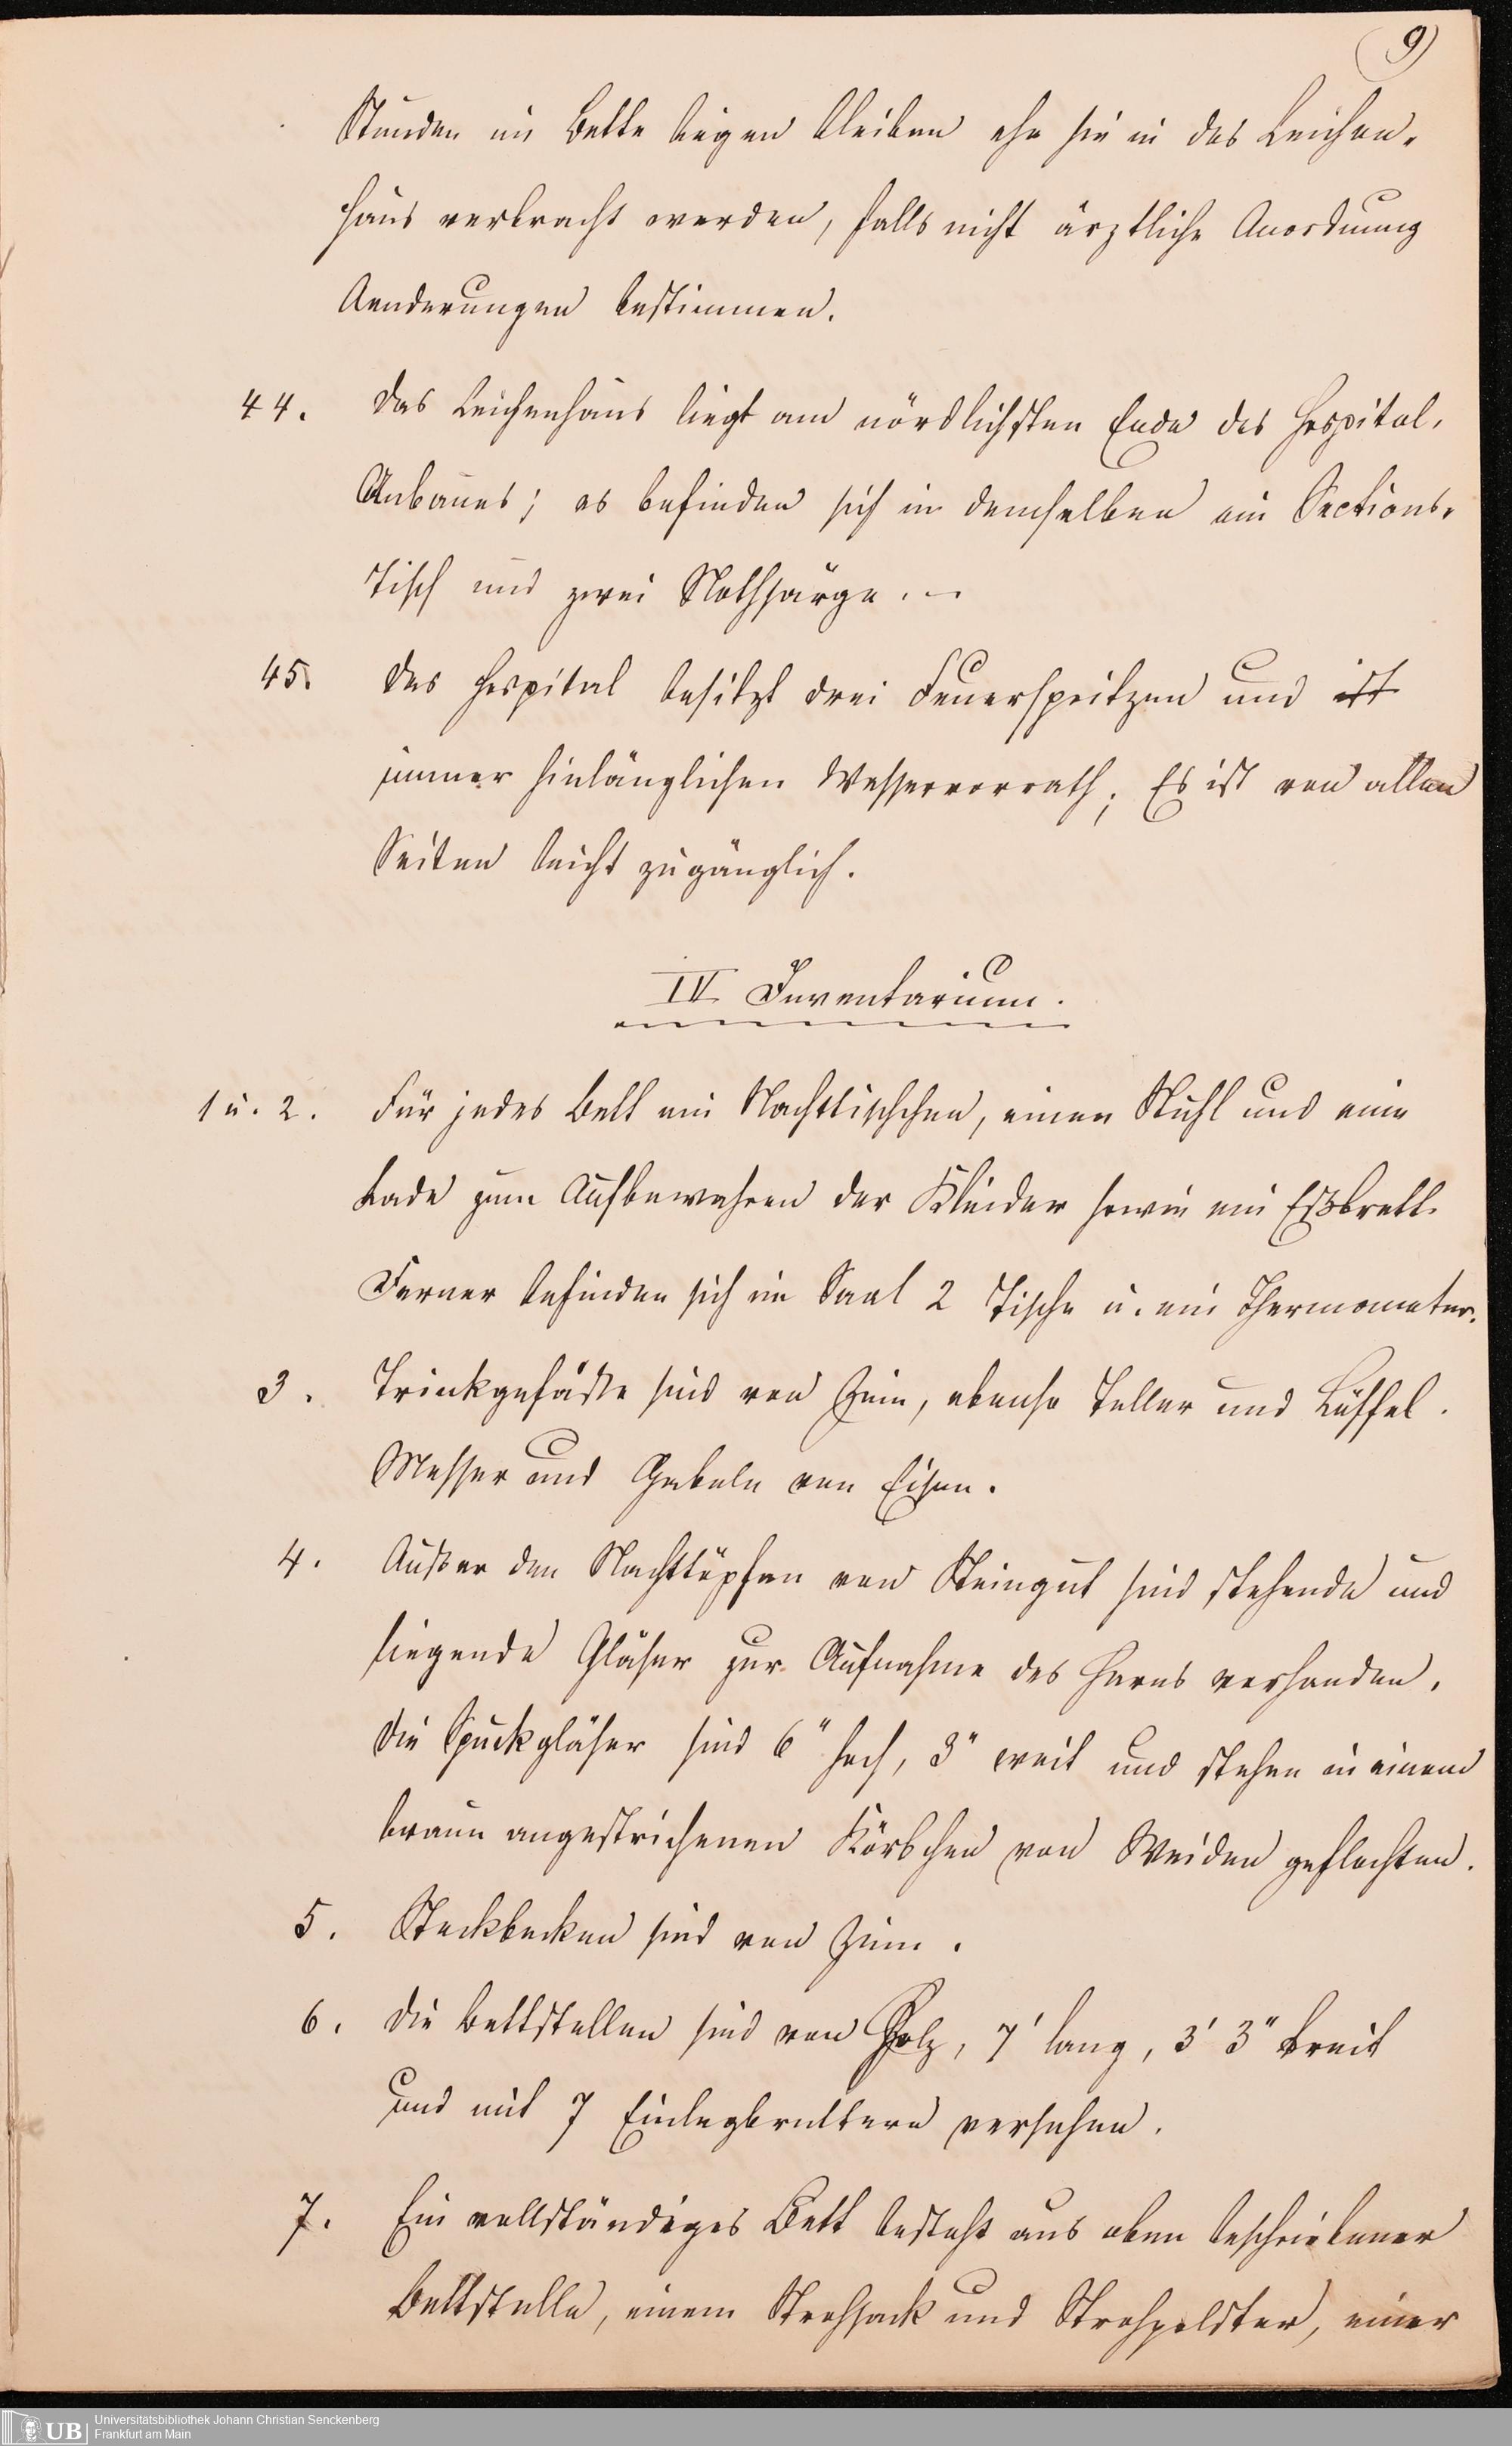 9)
Stunden im Bette liegen bleiben ehe sie in das Leichen-
haus verbracht werden, falls nicht ärztliche Anordnung
Aenderungen bestimmen.
44. Das Leichenhaus liegt am nördlichsten Ende des Hospital-
Anbaues; es befinden sich in demselben ein Sections-
Tisch und zwei Nothsärge. –
45. Das Hospital besitzt drei Feuerspritzen und ist
immer hinlänglichen Wasservorrath; Es ist von allen
Seiten leicht zugänglich.
IV Inventarium.
1 u. 2. Für jedes Bett ein Nachttischchen, einen Stuhl und eine
Lade zum Aufbewahren der Kleider sowie ein Eßbrett.
Ferner befinden sich im Saal 2 Tische u. ein Thermometer.
3. Trinkgefäße sind von Zinn, ebenso Teller und Löffel.
Messer und Gabeln von Eisen.
4. Außer den Nachttöpfen von Steingut sind stehende und
liegende Gläser zur Aufnahme des Harns vorhanden.
Die Spuckgläser sind 6" hoch, 3" weit und stehen in einem
braun angestrichenen Körbchen von Weiden geflochten.
5. Steckbecken sind von Zinn.
6. Die Bettstellen sind von Holz, 7' lang, 3' 3" breit
und mit 7 Einlegbrettern versehen.
7. Ein vollständiges Bett besteht aus oben beschriebener
Bettstelle, einem Strohsack und Strohpolster, einer
UB
Universitätsbibliothek Johann Christian Senckenberg
Frankfurt am Main